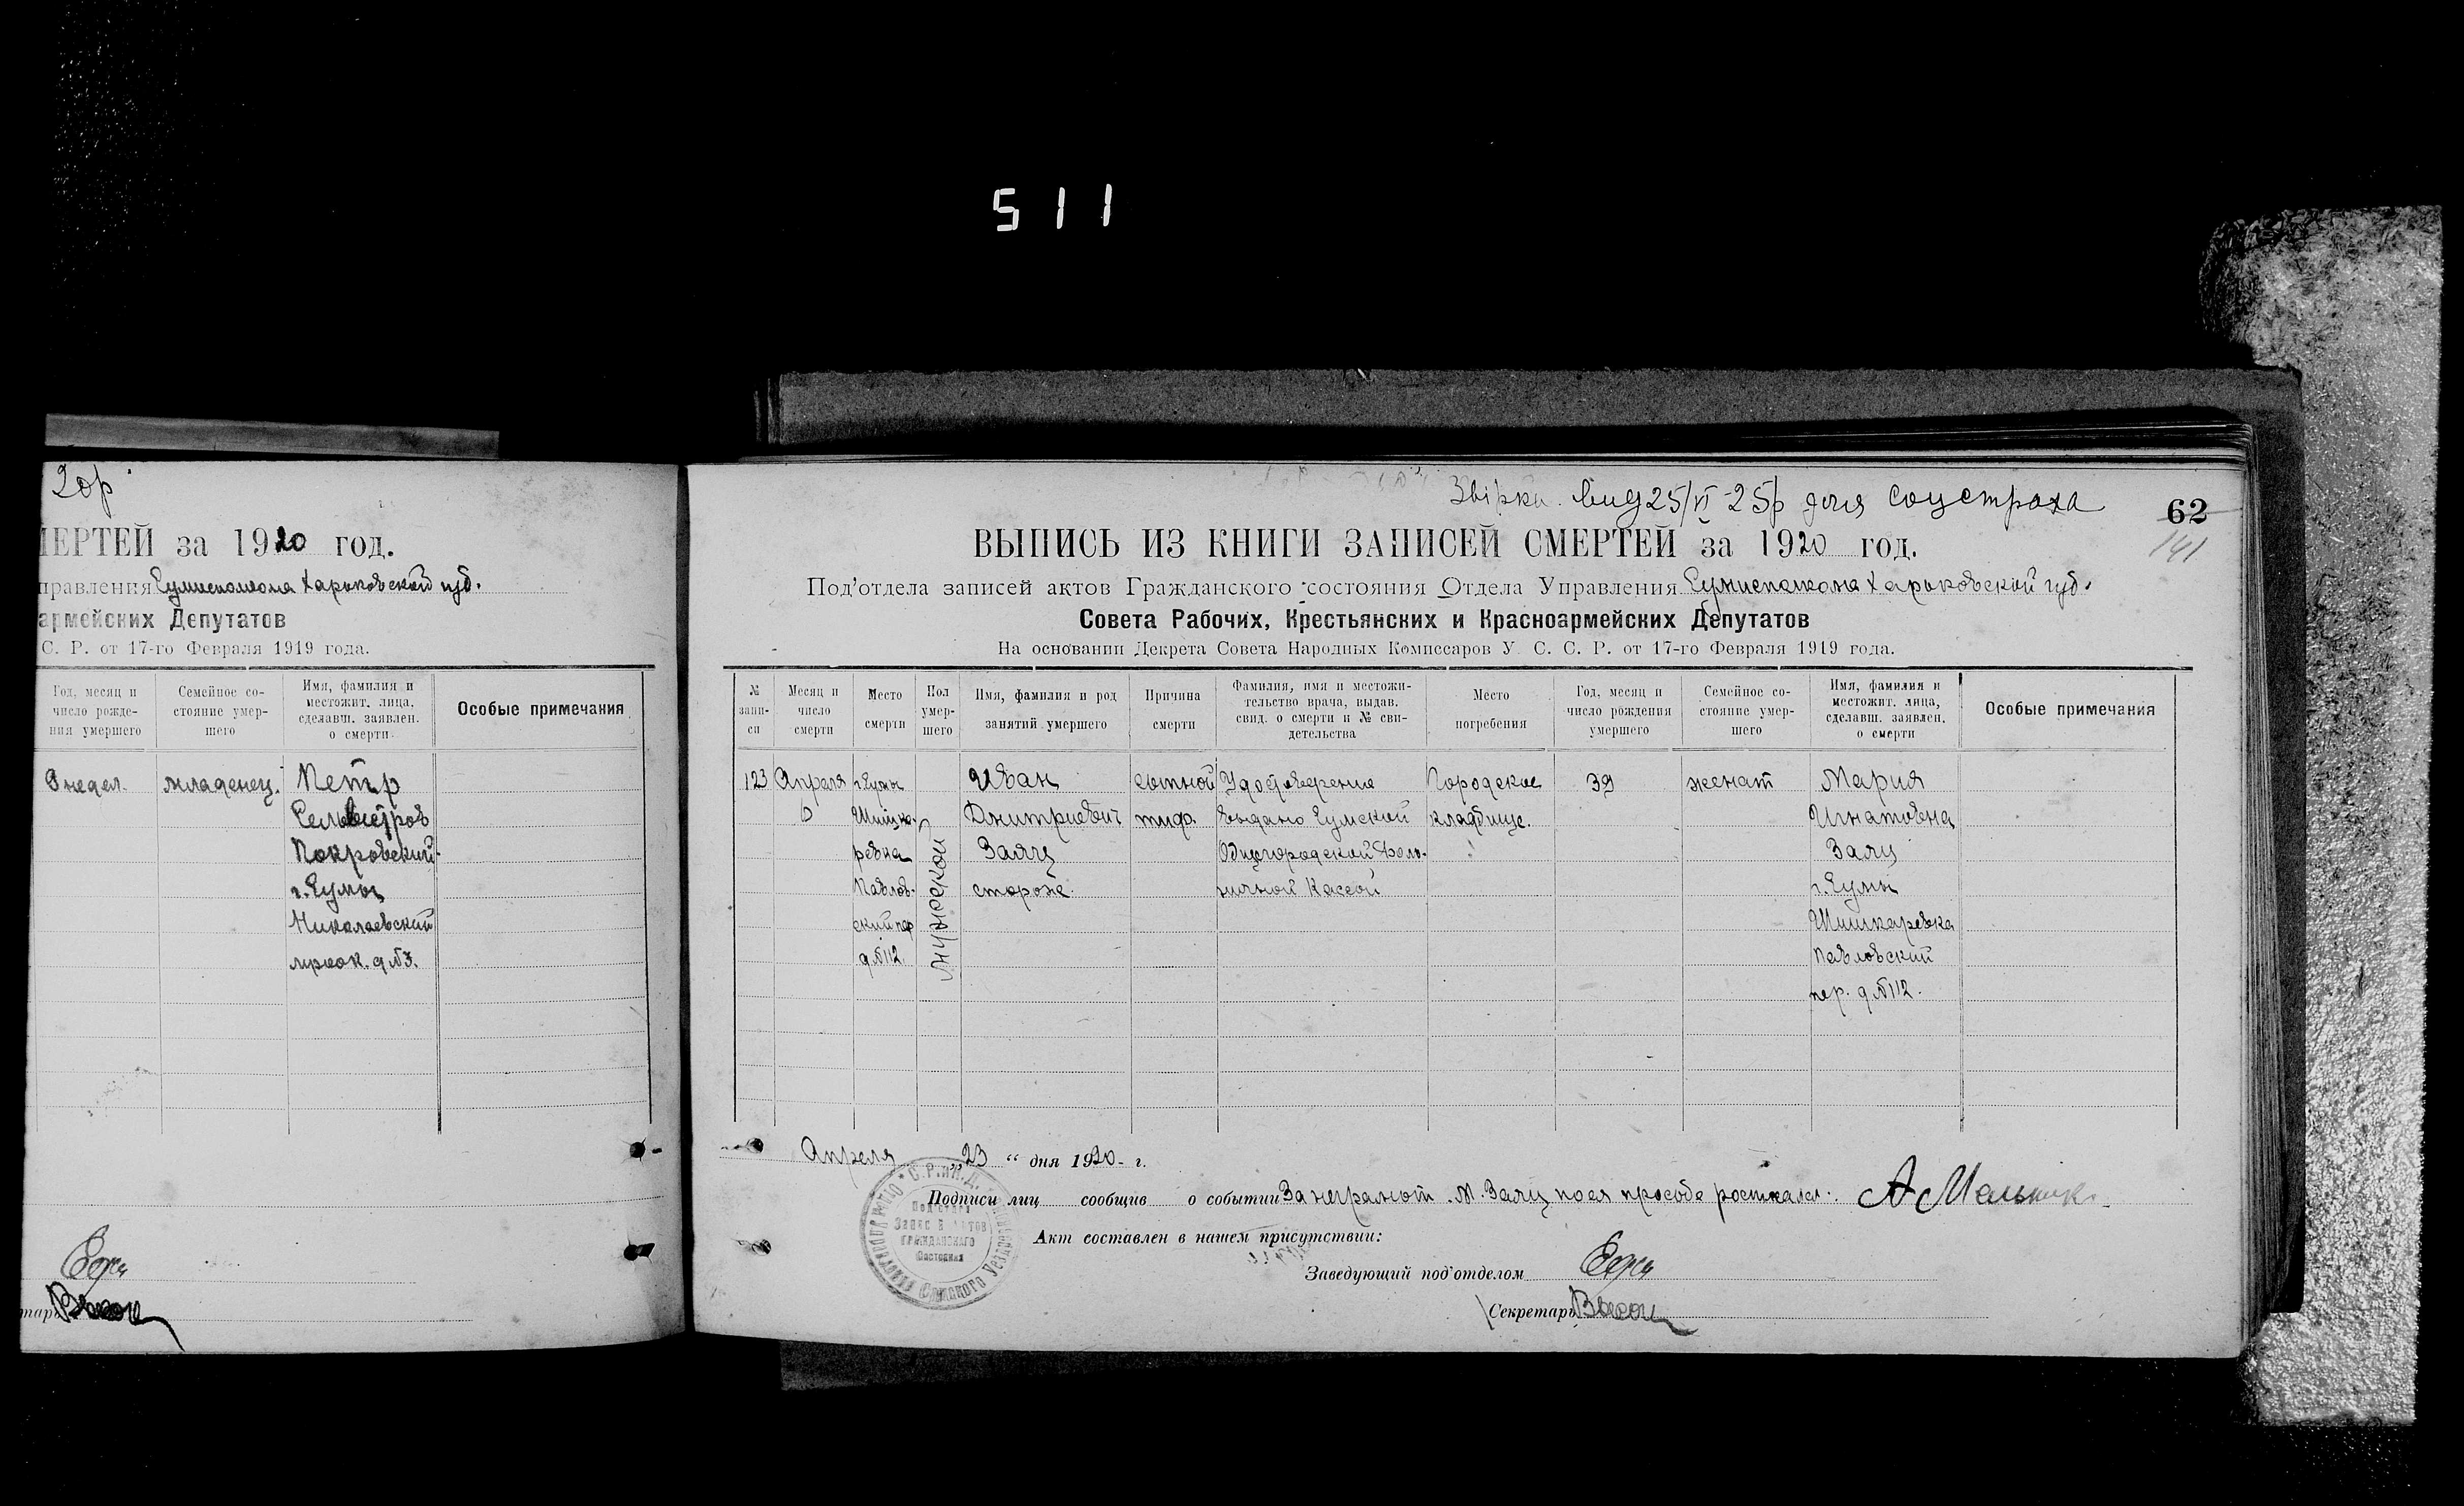 511
20р
МЕРТЕЙ за 1920 год.
правления Сумисполкома Харьковской губ.
армейских Депутатов
С. Р. от 17-го Февраля 1919 года.
Год, месяц и число рожде-ния умершего
Семейное со-стояние умер-шего
Имя, фамилия и местожит. лица, сделавш. заявлен. о смерти
Особые примечания
недел.
младенец.
Петр
Покровский
г. Сумы
Николаевский
д №3.
Звірка. 25/VI-25р для Соцстраха
62
141
ВЫПИСЬ ИЗ КНИГИ ЗАПИСЕЙ СМЕРТЕЙ за 1920 год.
Под'отдела записей актов Гражданского состояния Отдела Управления Сумисполкома Харьковской губ.
Совета Рабочих, Крестьянских и Красноармейских Депутатов
На основании Декрета Совета Народных Комиссаров У. С. С. Р. от 17-го Февраля 1919 года.
№ запи-си
Месяц и число смерти
Место смерти
Пол умер-шего
Имя, фамилия и род занятий умершего
Причина смерти
Фамилия, имя и местожи-тельство врача, выдав. свид. о смерти и № сви-детельства
Место погребения
Год, месяц и число рождения умершего
Семейное со-стояние умер-шего
Имя, фамилия и местожит. лица, сделавш. заявлен. о смерти
Особые примечания
123
Апреля
г. Сумы
Шишка-
ревка
Павлов-
ский пер
д №112.
мужской
Иван
Дмитриевич
Заяц
сторож.
сыпной
тиф.
Удостоверение
выдано Сумской
Общегородской боль-
ничной Кассой
Городское
кладбище.
39
женат
Мария
Игнатовна
Заяц
г. Сумы
Шишкаревка
Павловский
пер. д №112.
Апреля „23 “ дня 1920 г.
Подписи лиц сообщив о событии За неграмот. М. Заяц по ея просьбе А Мельник
С.Р. и К.Д.
Под'отдел
Запис й Актов
Гражданского
Состояния
Сумского
Акт составлен в нашем присутствии:
Заведующий под'отделом
Секретарь